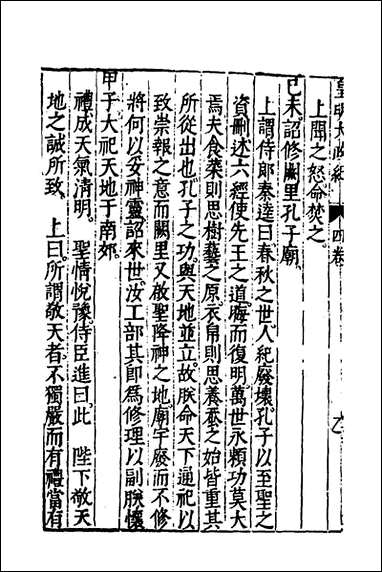 皇明大政紀 四卷
上聞之怒命焚之
己未詔修闕里孔子廟
上謂侍郎秦逵曰春秋之世人紀廢壞孔子以至聖之
資刪述六經使先王之道晦而復明萬世永賴功莫大
焉夫食菜則思樹藝之原衣帛則思養蚕之始皆重其
所從出也孔子之功與天地並立故朕命天下通祀以
致崇報之意而闕里又啟聖降神之地廟宇廢而不修
將何以妥神靈詔來世汝工部其即爲修理以副朕懷
甲子大祀天地于南郊
禮成天氣清明 聖情悅豫侍臣進曰此 陛下敬天
地之誠所致 上曰所謂敬天者不獨嚴而有禮當有